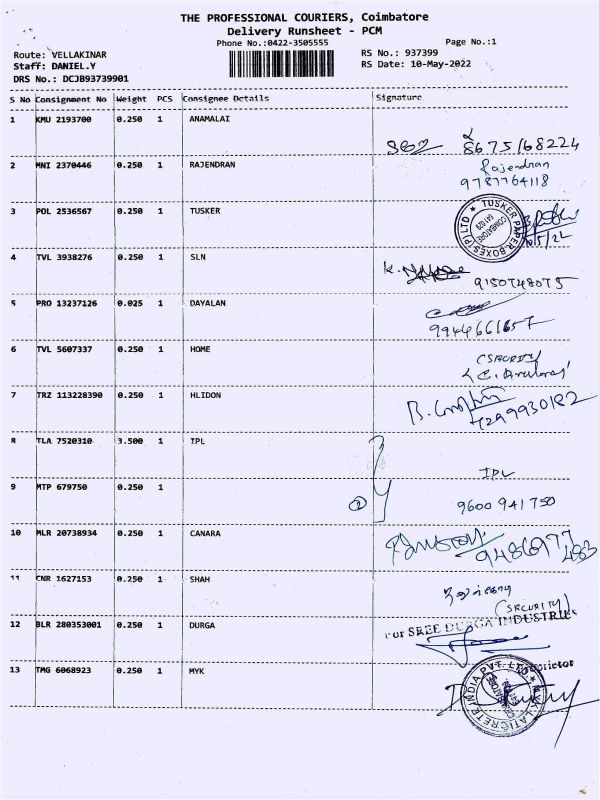 THE PROFESSIONAL COURIERS, Coimbatore
Delivery Runsheet - PCM
Phone No.:0422-3505555 Page No.:1
Route: VELLAKINAR RS No.: 937399
Staff: DANIEL.Y RS Date: 10-May-2022
DRS No.: DCJB93739901
S No Consignment No Weight PCS Consignee Details Signature
1 KMU 2193700 0.250 1 ANAMALAI
8675168224
2 MNI 2370446 0.250 1 RAJENDRAN Rajendran
9787764118
3 POL 2536567 0.250 1 TUSKER
TUSKER PAPER BOXES (P) LTD ★
COIMBATORE
641 029
4 TVL 3938276 0.250 1 SLN
9150748075
5 PRO 13237126 0.025 1 DAYALAN
9944661657
6 TVL 5607337 0.250 1 HOME
(SECURITY)
7 TRZ 113228390 0.250 1 HLIDON
7299930182
8 TLA 7520310 3.500 1 IPL
IPL
9 MTP 679750 0.250 1
② 9600 941 750
10 MLR 20738934 0.250 1 CANARA
11 CNR 1627153 0.250 1 SHAH
(SECURITY)
12 BLR 280353001 0.250 1 DURGA
For SREE DURGA INDUSTRIES
Proprietor
13 TMG 6068923 0.250 1 MYK
MYK LATICRETE INDIA PVT. LTD.